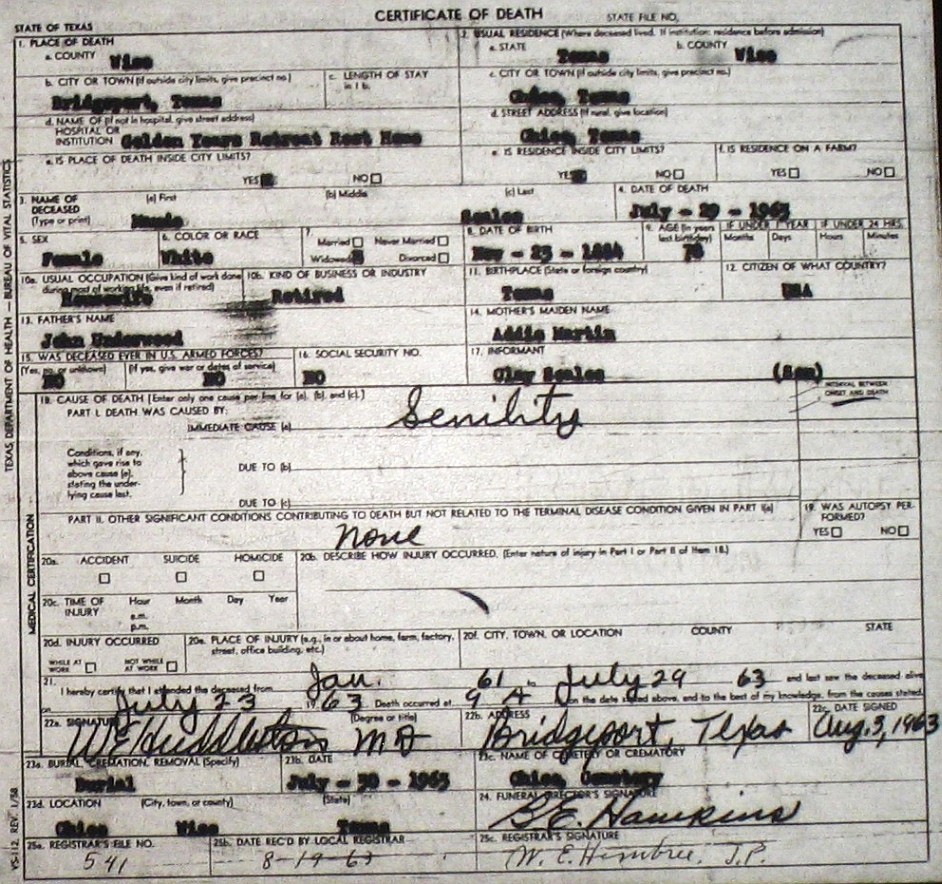 CERTIFICATE OF DEATH
STATE OF TEXAS
STATE FILE NO,
1. PLACE OF DEATH
a. COUNTY Wise
2. USUAL RESIDENCE (Where deceased lived. If institution: residence before admission)
a. STATE Texas b. COUNTY Wise
b. CITY OR TOWN (If outside city limits, give precinct no.) Bridgeport, Texas
c. LENGTH OF STAY in 1 b.
c. CITY OR TOWN (If outside city limits, give precinct no.) Chico, Texas
d. NAME OF (If not in hospital, give street address) HOSPITAL OR INSTITUTION Golden Years Retreat Rest Home
d. STREET ADDRESS (If rural, give location) Chico, Texas
e. IS PLACE OF DEATH INSIDE CITY LIMITS?
YES NO
e. IS RESIDENCE INSIDE CITY LIMITS?
YES NO
f. IS RESIDENCE ON A FARM?
YES NO
3. NAME OF DECEASED (Type or print)
(a) First (b) Middle (c) Last Scales
4. DATE OF DEATH
July - 29 - 1963
5. SEX Female
6. COLOR OR RACE White
7. Married Never Married
Widowed Divorced
8. DATE OF BIRTH Nov - 23 - 1884
9. AGE (In years last birthday) 78
IF UNDER 1 YEAR Months Days
IF UNDER 24 HRS. Hours Minutes
10a. USUAL OCCUPATION (Give kind of work done during most of working life, even if retired) Housewife
10b. KIND OF BUSINESS OR INDUSTRY Retired
11. BIRTHPLACE (State or foreign country) Texas
12. CITIZEN OF WHAT COUNTRY? USA
13. FATHER'S NAME John Underwood
14. MOTHER'S MAIDEN NAME Addie Martin
15. WAS DECEASED EVER IN U.S. ARMED FORCES?
(Yes, no or unknown) NO (If yes, give war or dates of service) NO
16. SOCIAL SECURITY NO. NO
17. INFORMANT Clay Scales (Son)
18. CAUSE OF DEATH [Enter only one cause per line for (a), (b), and (c).]
INTERVAL BETWEEN ONSET AND DEATH
PART I. DEATH WAS CAUSED BY:
IMMEDIATE CAUSE (a) Senility
Conditions, if any, which gave rise to above cause (a), stating the under-lying cause last.
DUE TO (b)
DUE TO (c)
PART II. OTHER SIGNIFICANT CONDITIONS CONTRIBUTING TO DEATH BUT NOT RELATED TO THE TERMINAL DISEASE CONDITION GIVEN IN PART I(a)
None
19. WAS AUTOPSY PER-FORMED?
YES NO
20a. ACCIDENT SUICIDE HOMICIDE
20b. DESCRIBE HOW INJURY OCCURRED. (Enter nature of injury in Part I or Part II of Item 18.)
20c. TIME OF INJURY Hour Month Day Year
a.m.
p.m.
20d. INJURY OCCURRED
WHILE AT WORK NOT WHILE AT WORK
20e. PLACE OF INJURY (e.g., in or about home, farm, factory, street, office building, etc.)
20f. CITY, TOWN, OR LOCATION COUNTY STATE
21. I hereby certify that I attended the deceased from Jan. 61 to July 29 63 and last saw the deceased alive
on July 23 1963 Death occurred at 9 A on the date stated above, and to the best of my knowledge, from the causes stated.
22a. SIGNATURE (Degree or title) W E Huddleston MD
22b. ADDRESS Bridgeport, Texas
22c. DATE SIGNED Aug. 3, 1963
23a. BURIAL, CREMATION, REMOVAL (Specify) Burial
23b. DATE July - 30 - 1963
23c. NAME OF CEMETERY OR CREMATORY Chico, Cemetery
23d. LOCATION (City, town, or county) (State)
Chico Wise Texas
24. FUNERAL DIRECTOR'S SIGNATURE B.E. Hawkins
25a. REGISTRAR'S FILE NO. 541
25b. DATE REC'D BY LOCAL REGISTRAR 8-19-63
25c. REGISTRAR'S SIGNATURE W. E. Hembree, J.P.
TEXAS DEPARTMENT OF HEALTH — BUREAU OF VITAL STATISTICS
MEDICAL CERTIFICATION
VS-112, REV. 1/58